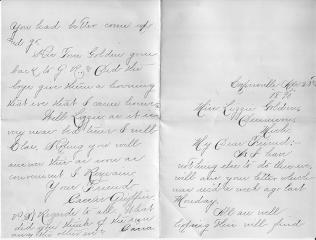 You had better come up
and go.
Tom Golden gone
back to G R. & Did the
boys give them a horning
that eve that I came home
Well Lizzie as it is
very near bed time I will
Close. Hoping you will
answer this as soon as
convenient I Remain
Your Friend
Carrie
P.S. Regards to all. What
did you think of the
and the other one Carrie
Miss Lizzie Golden,
Mich
My Dear Friend:-
As I have
nothing else to do this eve,
will ans your letter which
was rec'd a week ago last
Monday.
All are well
hoping this will find